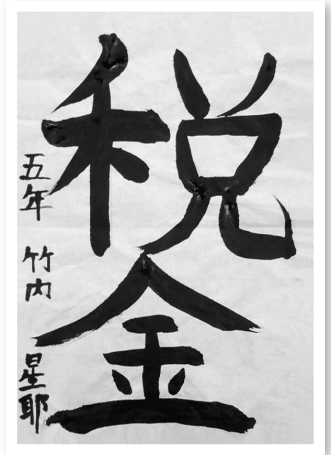 税金
五年 竹内 星耶